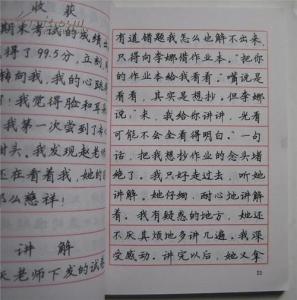 收获
期末考试的成绩出
得了99.5分,立刻,
转向我,我的心跳
!我觉得脸和耳
我第一次尝到了
甜头。我发现赵老
还在看着我,她的
那么慈祥!
讲解
天老师下发的试卷
有道错题我怎么也解不出来,
只得向李娜借作业本。“把你
的作业本给我看看。”嘴说是
看看,其实是想抄。但李娜
说:“来,我给你讲讲,光看
可能不会全看得明白。”一句
话,把我想抄作业的念头堵
绝了。我只好走过去,听她
讲解。她仔细、耐心地讲解
着。我有疑惑的地方,她还
不厌其烦地多讲几遍。我深
受感动。讲完以后,她又拿
53